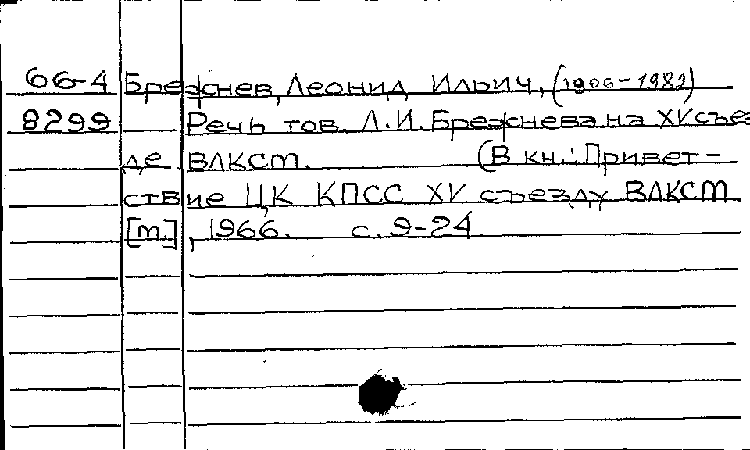 66-4 Брежнев, Леонид Ильич, (1906-1982)
8299 Речь тов. Л.И. Брежнева на XV съез
де ВЛКСМ. (В кн.: Привет-
ствие ЦК КПСС XV съезду ВЛКСМ
[М.], 1966. с. 9-24